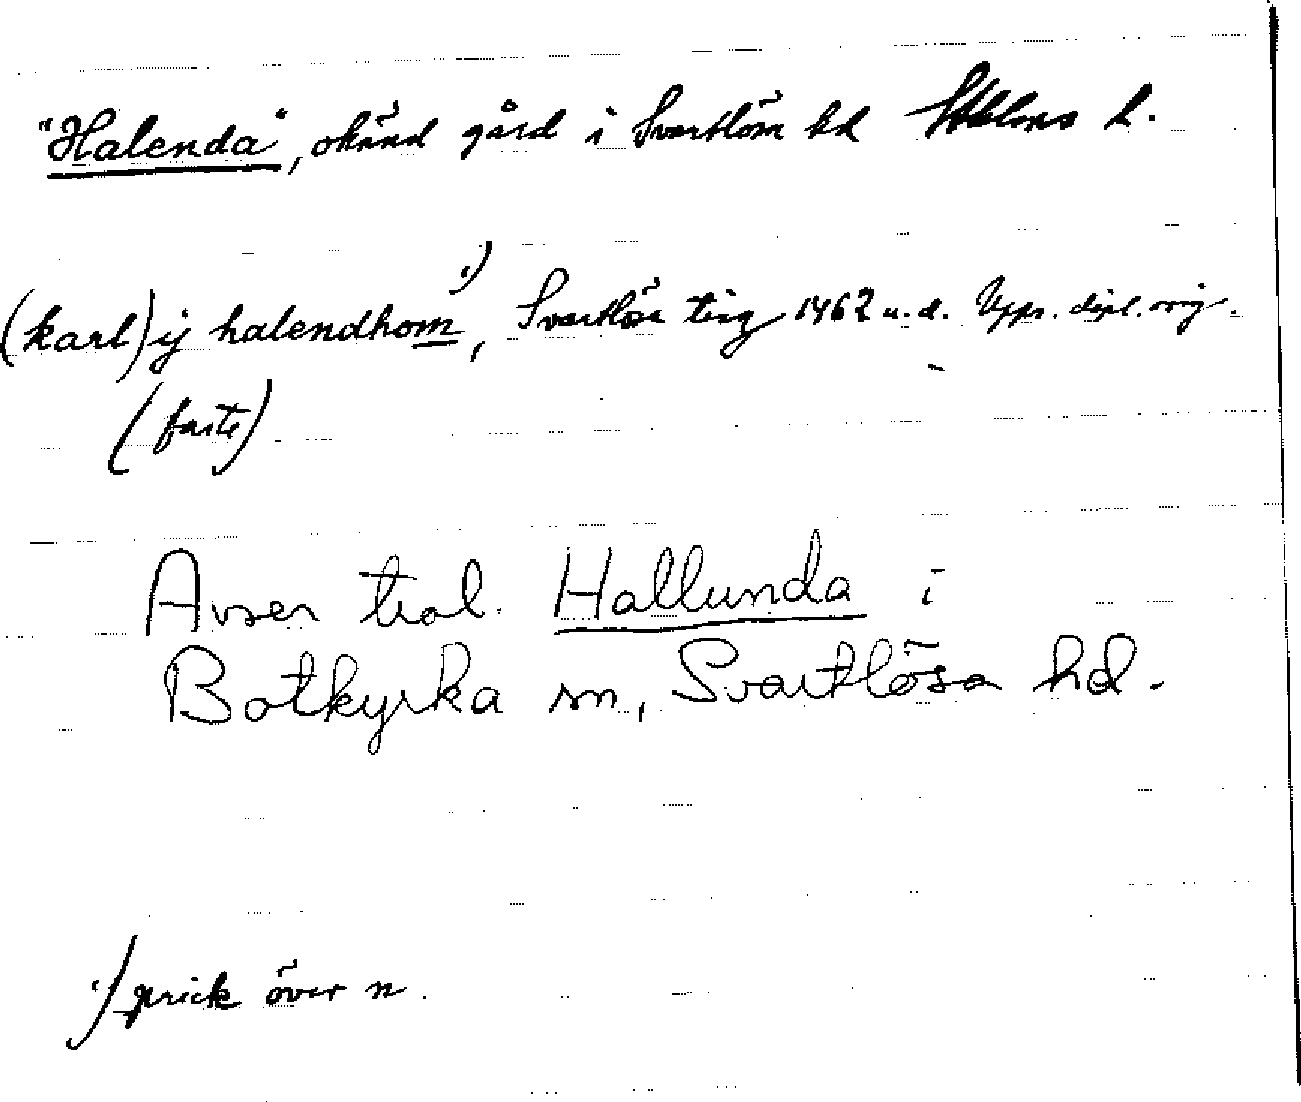 "Halenda", okänd gård i Svartlösa hd Sthlms l.
(karl) ij halendhom ¹), Svartlösa ting 1462 u.d. Upps. dipl. orig.
(faste)
Avser trol. Hallunda i
Botkyrka sn, Svartlösa hd.
¹) prick över n.